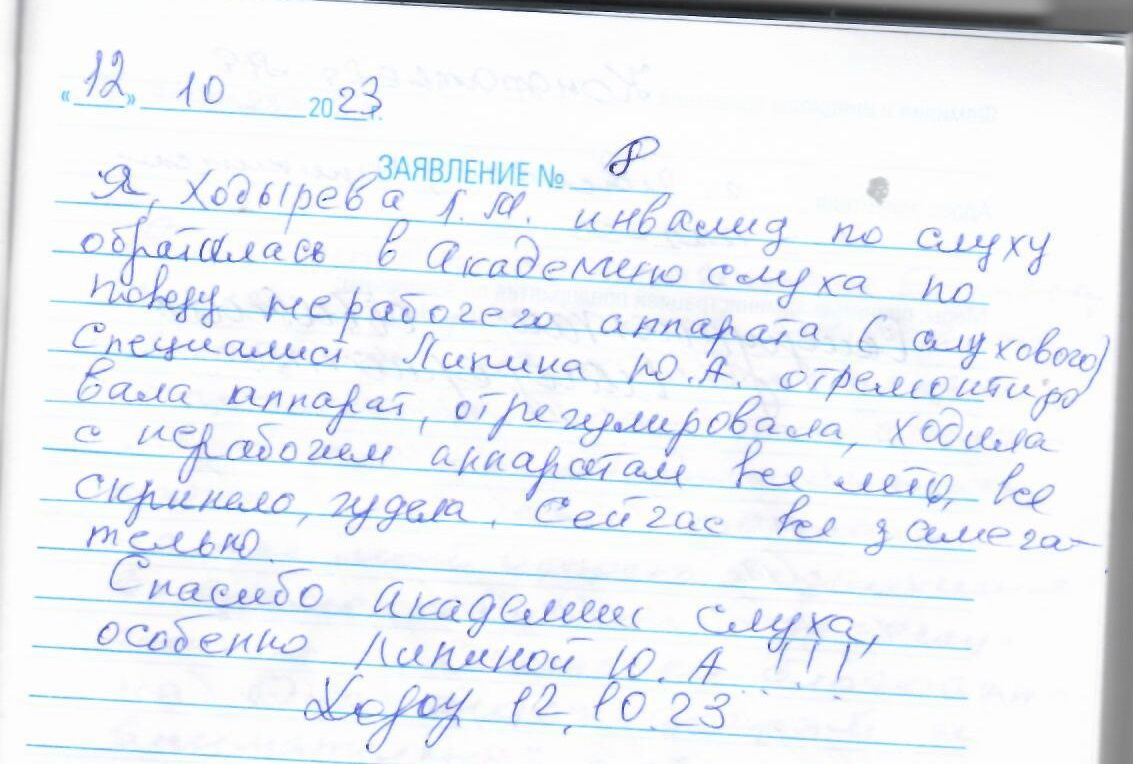 «12» 10 2023 г.
ЗАЯВЛЕНИЕ № 8
Я, Ходырева Г.М. инвалид по слуху
обратилась в Академию слуха по
поводу нерабочего аппарата (слухового)
Специалист Липина Ю.А. отремонтиро
вала аппарат, отрегулировала, ходила
с нерабочем аппаратам все лето, все
скрипело, гудела. Сейчас все замечат-
тельно.
Спасибо академии слуха,
особенно Липиной Ю.А !!!
12.10.23